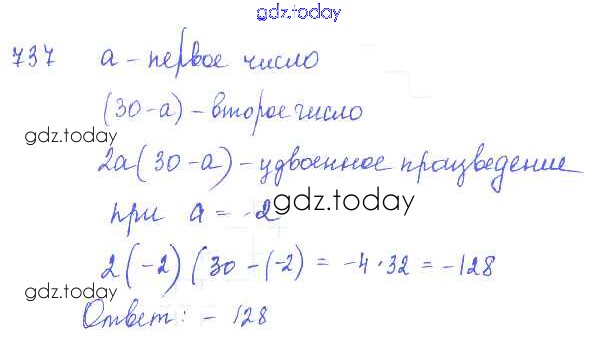 gdz.today
737 a - первое число
(30-a) - второе число
gdz.today
2a(30-a) - удвоенное произведение
gdz.today
при a = -2
2(-2)(30-(-2) = -4·32 = -128
gdz.today
Ответ: - 128